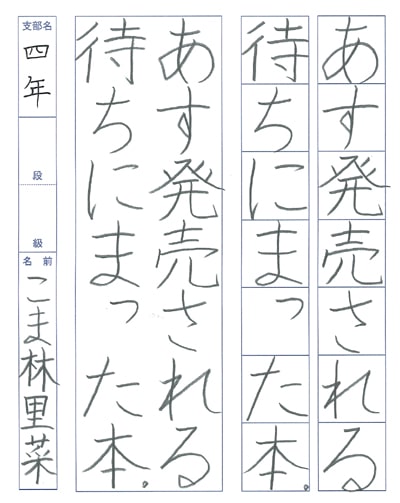 あす発売される
待ちにまった本。
あす発売される
待ちにまった本。
支部名
四年
段
級
名前
こま林里菜